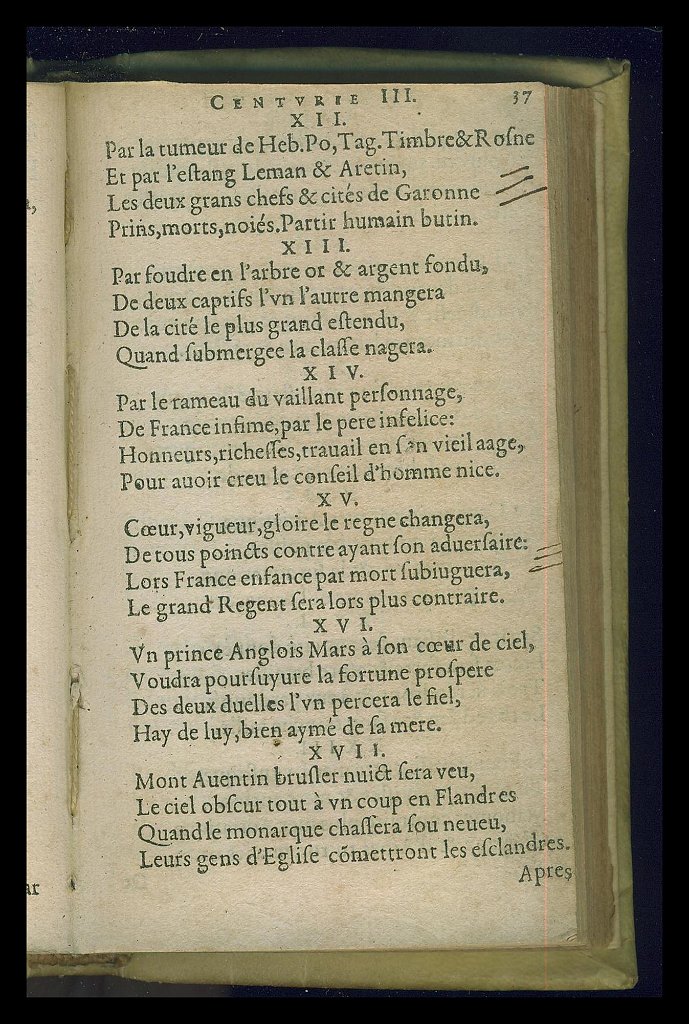 CENTVRIE III. 37
XII.
Par la tumeur de Heb.Po,Tag.Timbre&Roſne
Et par l'eſtang Leman & Aretin,
Les deux grans chefs & cités de Garonne
Prins,morts,noiés.Partir humain butin.
XIII.
Par foudre en l'arbre or & argent fondu,
De deux captifs l'vn l'autre mangera
De la cité le plus grand eſtendu,
Quand ſubmergee la claſſe nagera.
XIV.
Par le rameau du vaillant perſonnage,
De France infime,par le pere infelice:
Honneurs,richeſſes,trauail en ſon vieil aage,
Pour auoir creu le conſeil d'homme nice.
XV.
Cœur,vigueur,gloire le regne changera,
De tous poincts contre ayant ſon aduerſaire:
Lors France enfance par mort ſubiuguera,
Le grand Regent ſera lors plus contraire.
XVI.
Vn prince Anglois Mars à ſon cœur de ciel,
Voudra pourſuyure la fortune proſpere
Des deux duelles l'vn percera le fiel,
Hay de luy,bien aymé de ſa mere.
XVII.
Mont Auentin bruſler nuict ſera veu,
Le ciel obſcur tout à vn coup en Flandres
Quand le monarque chaſſera ſou neueu,
Leurs gens d'Egliſe cõmettront les eſclandres.
Apres
ar